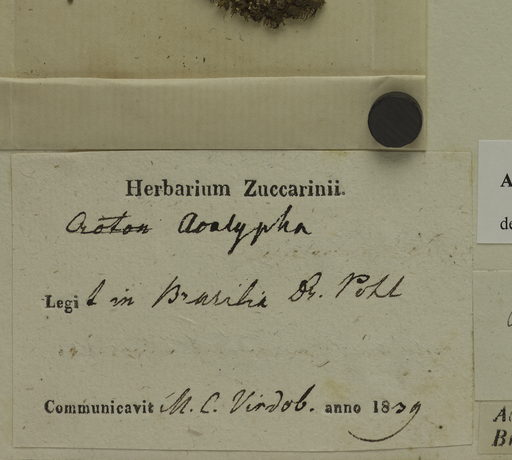 Herbarium Zuccarinii.
Croton Acalypha
Legit in Brasilia Dr. Pohl
Communicavit M. C. Vindob. anno 1839
A
de